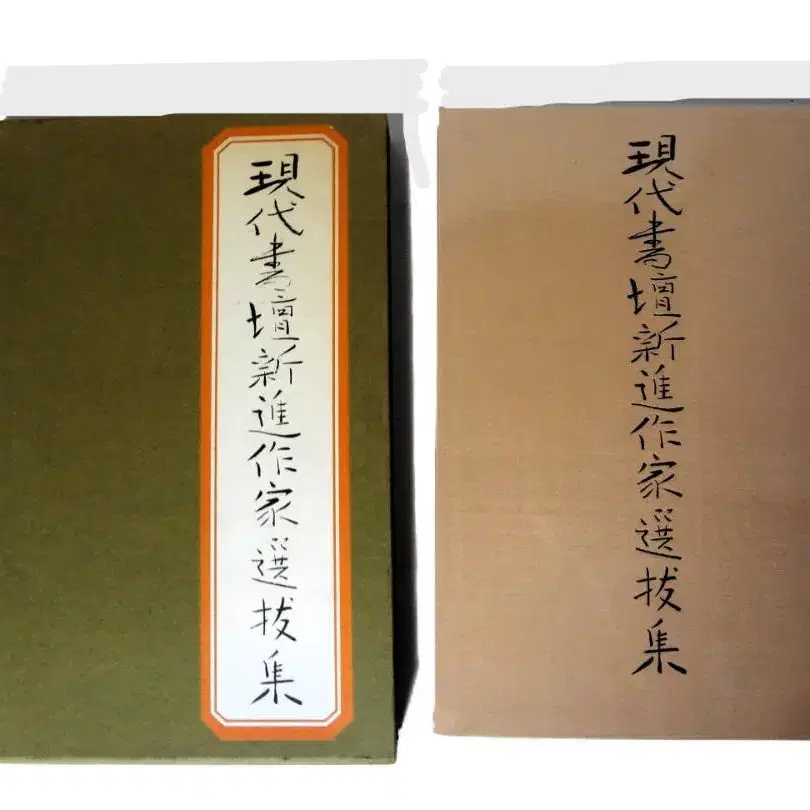 現代書壇新進作家選抜集
現代書壇新進作家選抜集